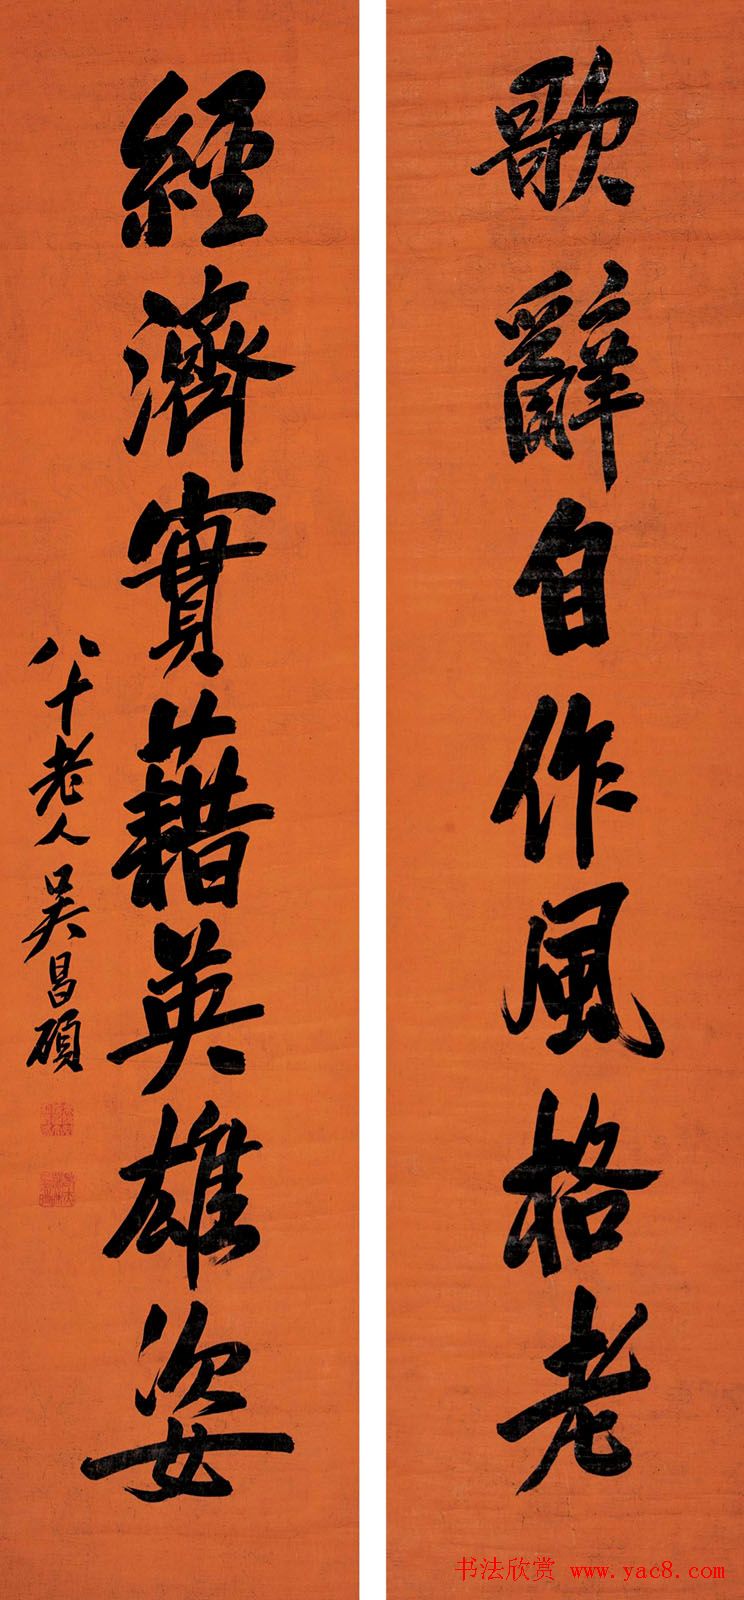 歌辭自作風格老
經濟實藉英雄姿
八十老人吳昌碩
书法欣赏 www.yac8.com